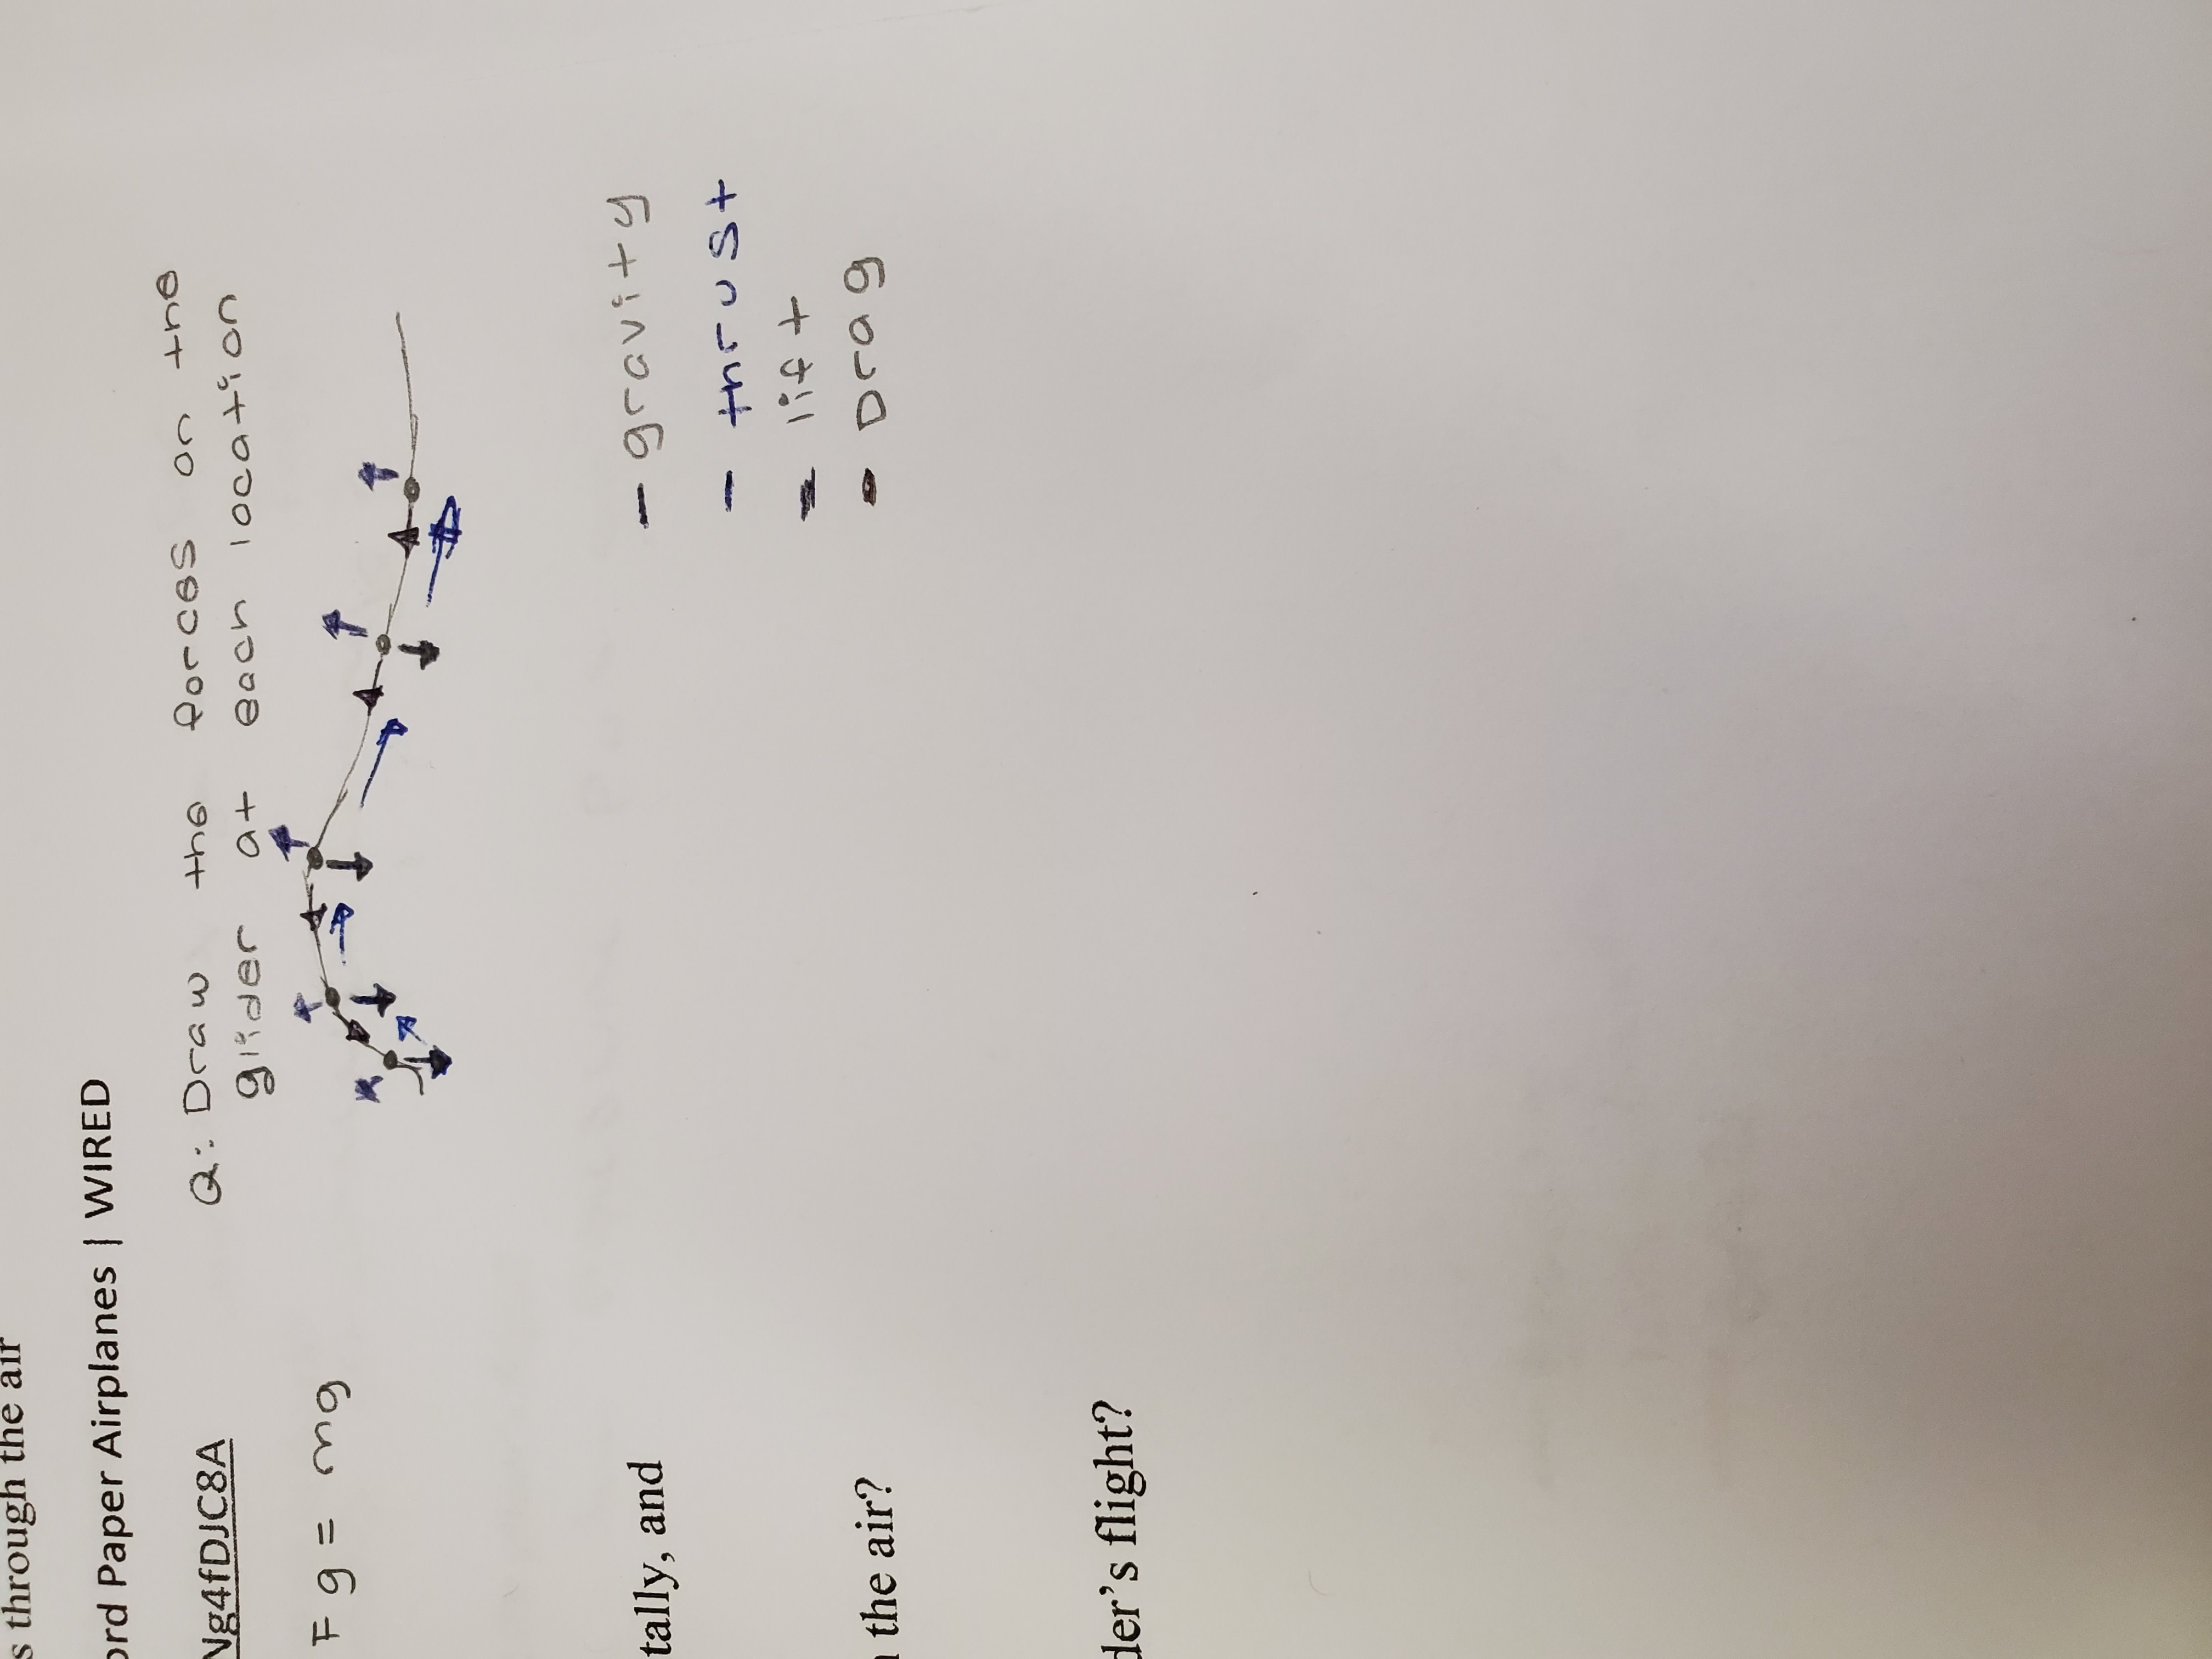 s through the air
ord Paper Airplanes | WIRED
Ng4fDJC8A
Q: Draw the forces on the
glider at each location
Fg = mg
tally, and
- gravity
- thrust
- lift
- Drag
n the air?
der's flight?